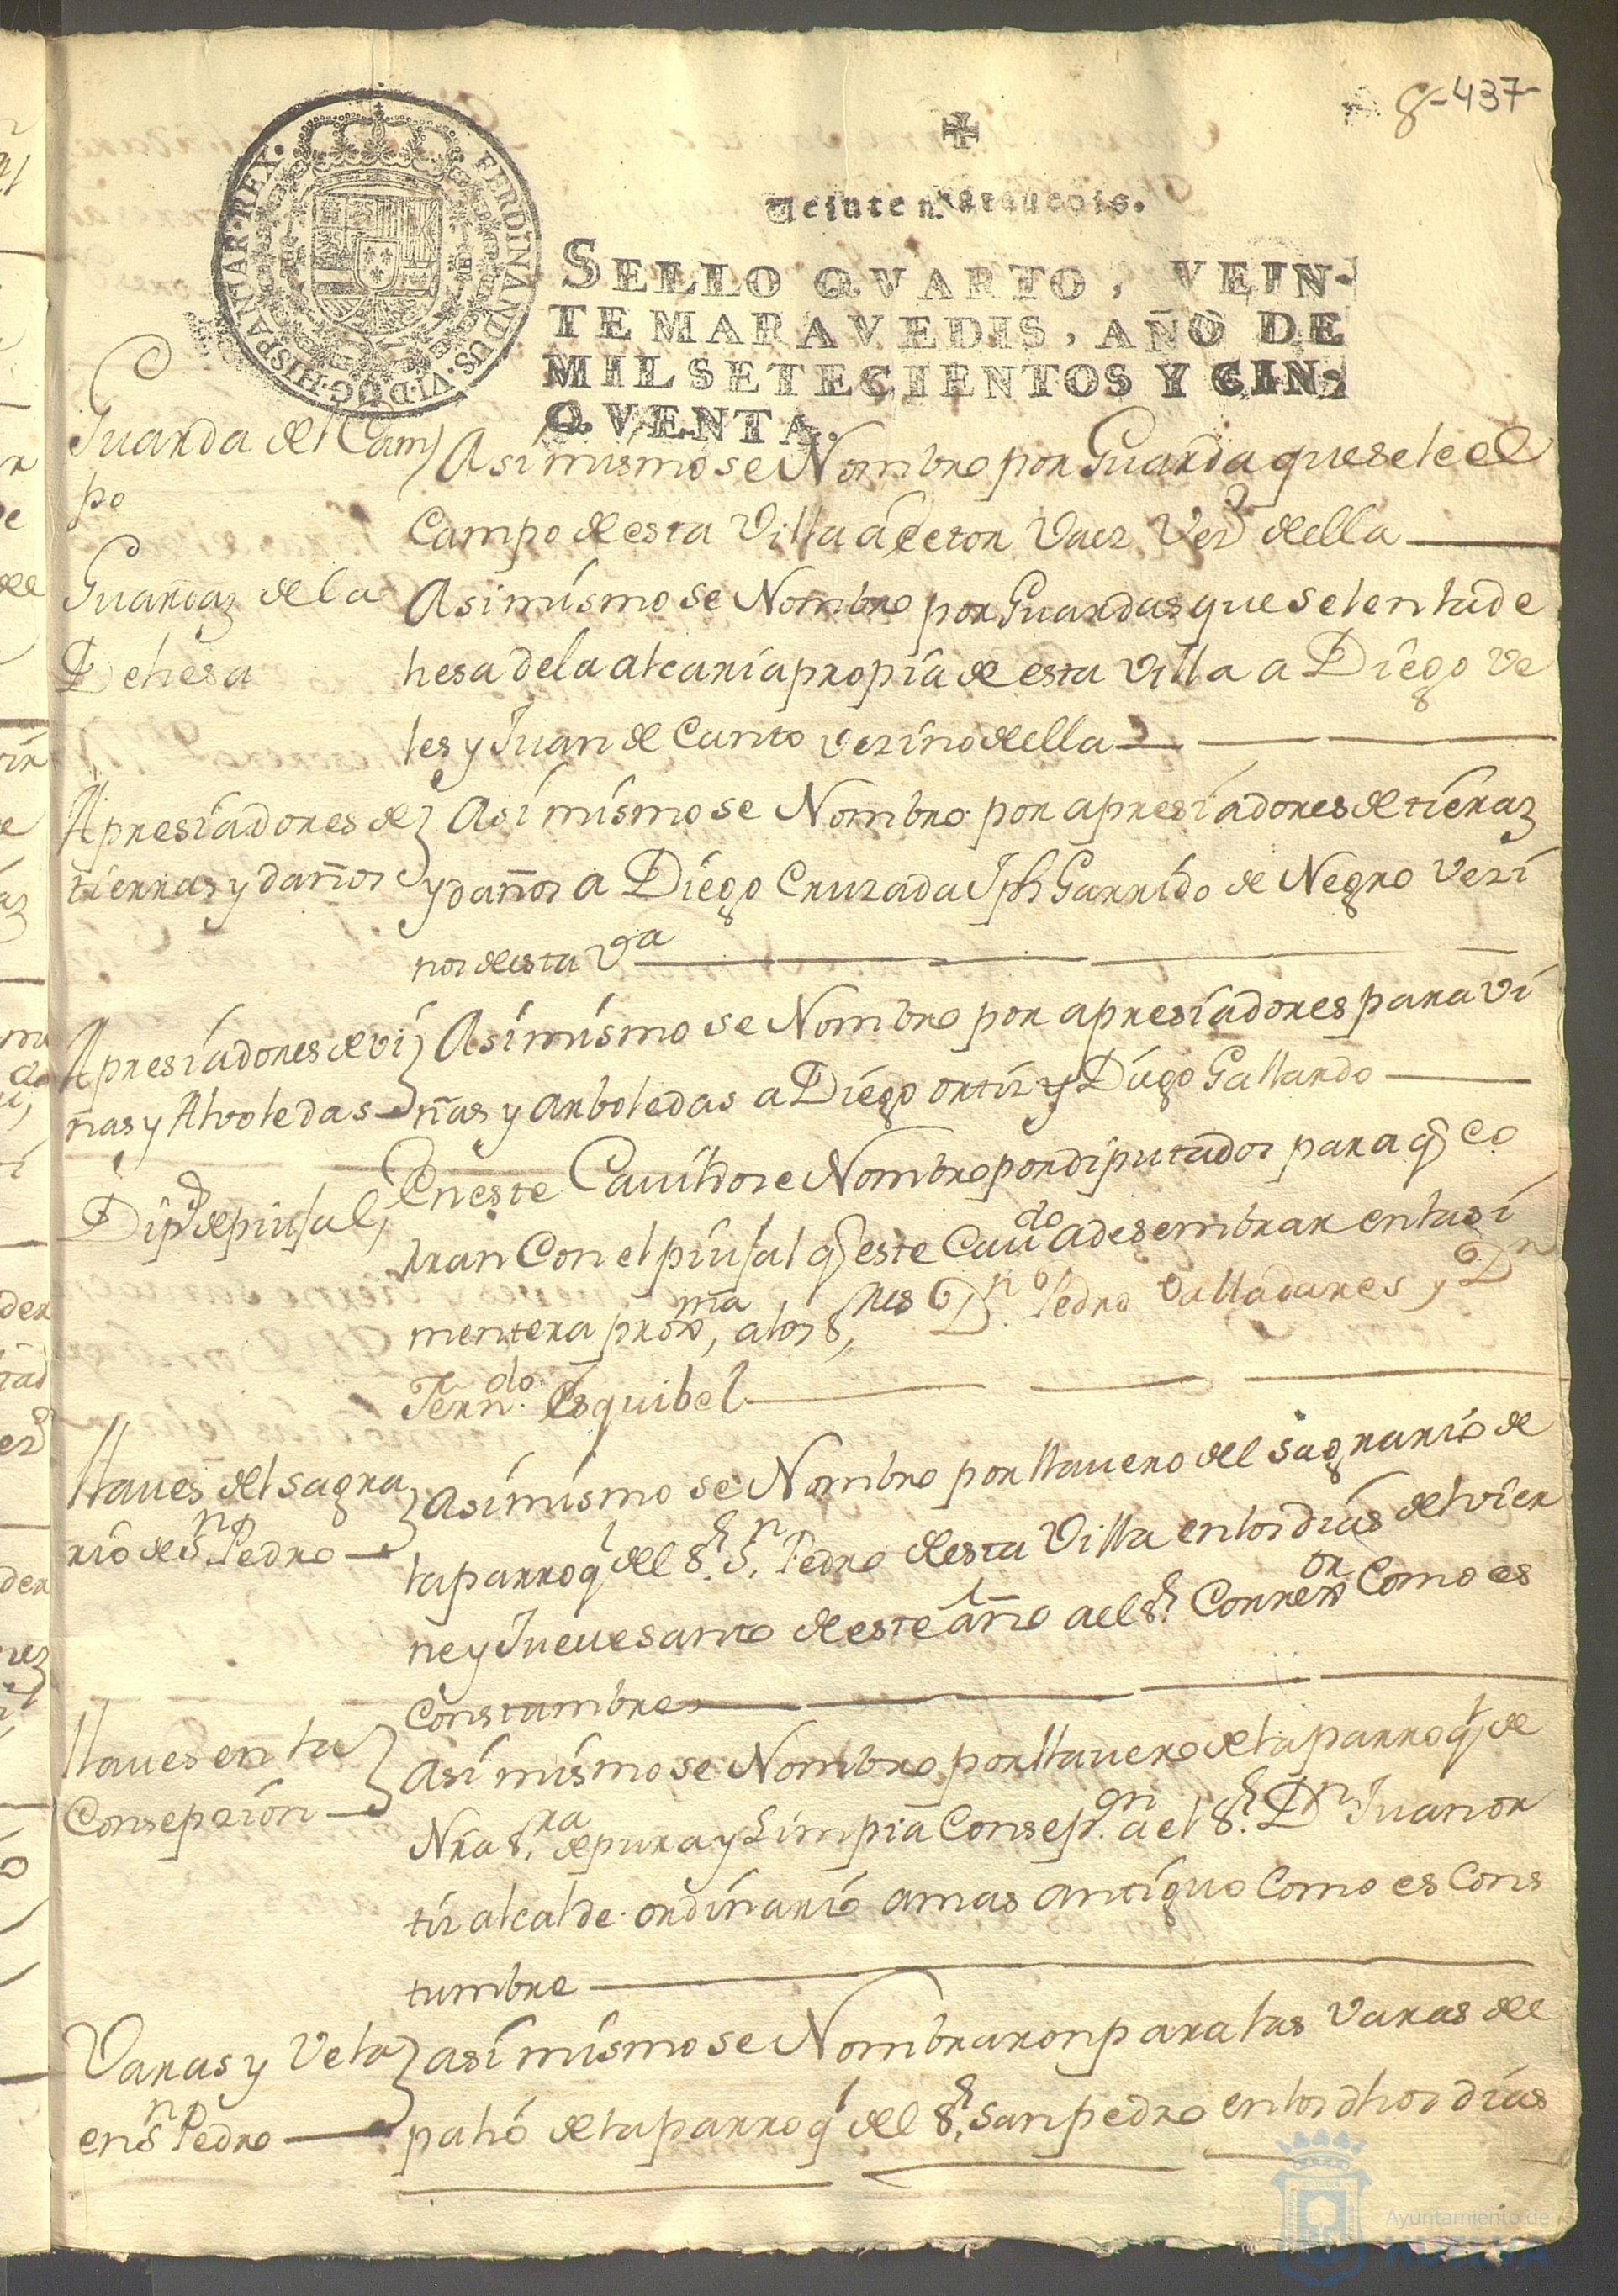 8-437
Veinte maravedis.
SELLO QVARTO, VEIN-
TE MARAVEDIS, AÑO DE
MIL SETECIENTOS Y CIN-
QVENTA.
FERDINANDUS·VI·D·G·HISPANIAR·REX·
Guarda del Cam
po
Asi mismo se Nombro por Guarda que sele el
Campo de esta Villa a Vaez Vez.º della
Guardas de la
Dehesa
Asi mismo se Nombro por Guardas que selen la de
hesa de la alcaria propia de esta Villa a Diego Ve
les y Juan de Canto vezino della
Apresiadores de
tierras y daños
Asi mismo se Nombro por apresiadores de tieras
y daños a Diego Cruzada Jph Garrido de Negro Vezi
nos de esta Va
Apresiadores de vi
ñas y Alvoledas
Asi mismo se Nombro por apresiadores para vi
ñas y arboledas a Diego ortiz y Diego Gallardo
Dip.s de piujal
En este Cavildo se Nombro por diputados para q co
rran Con el piujal q este Cavdo a de sembrar en la si
mentera proxma, a los Sres Dn Pedro Valladares y Dn
Ferndo Esquibel
Llaves del sagra
rio de Sn Pedro
Asi mismo se Nombro por llavero del sagrario de
la parroql del Sr Sn Pedro de esta Villa en los dias del vier
ne y Jueve santo de este año a el Sr Corregor Como es
Constumbre
Llaves en la
Consepsion
Asi mismo se Nombro por llavero de la parroql de
Nra Sra de pura y Limpia Consepon a el Sr Dn Juan or
tiz alcalde ordinario a mas antiguo Como es Cons
tumbre
Varas y Vela
en Sn Pedro
asi mismo se Nombraron para las Varas del
palio de la parroql del Sr San pedro en los dhos dias
Ayuntamiento de
HUELVA